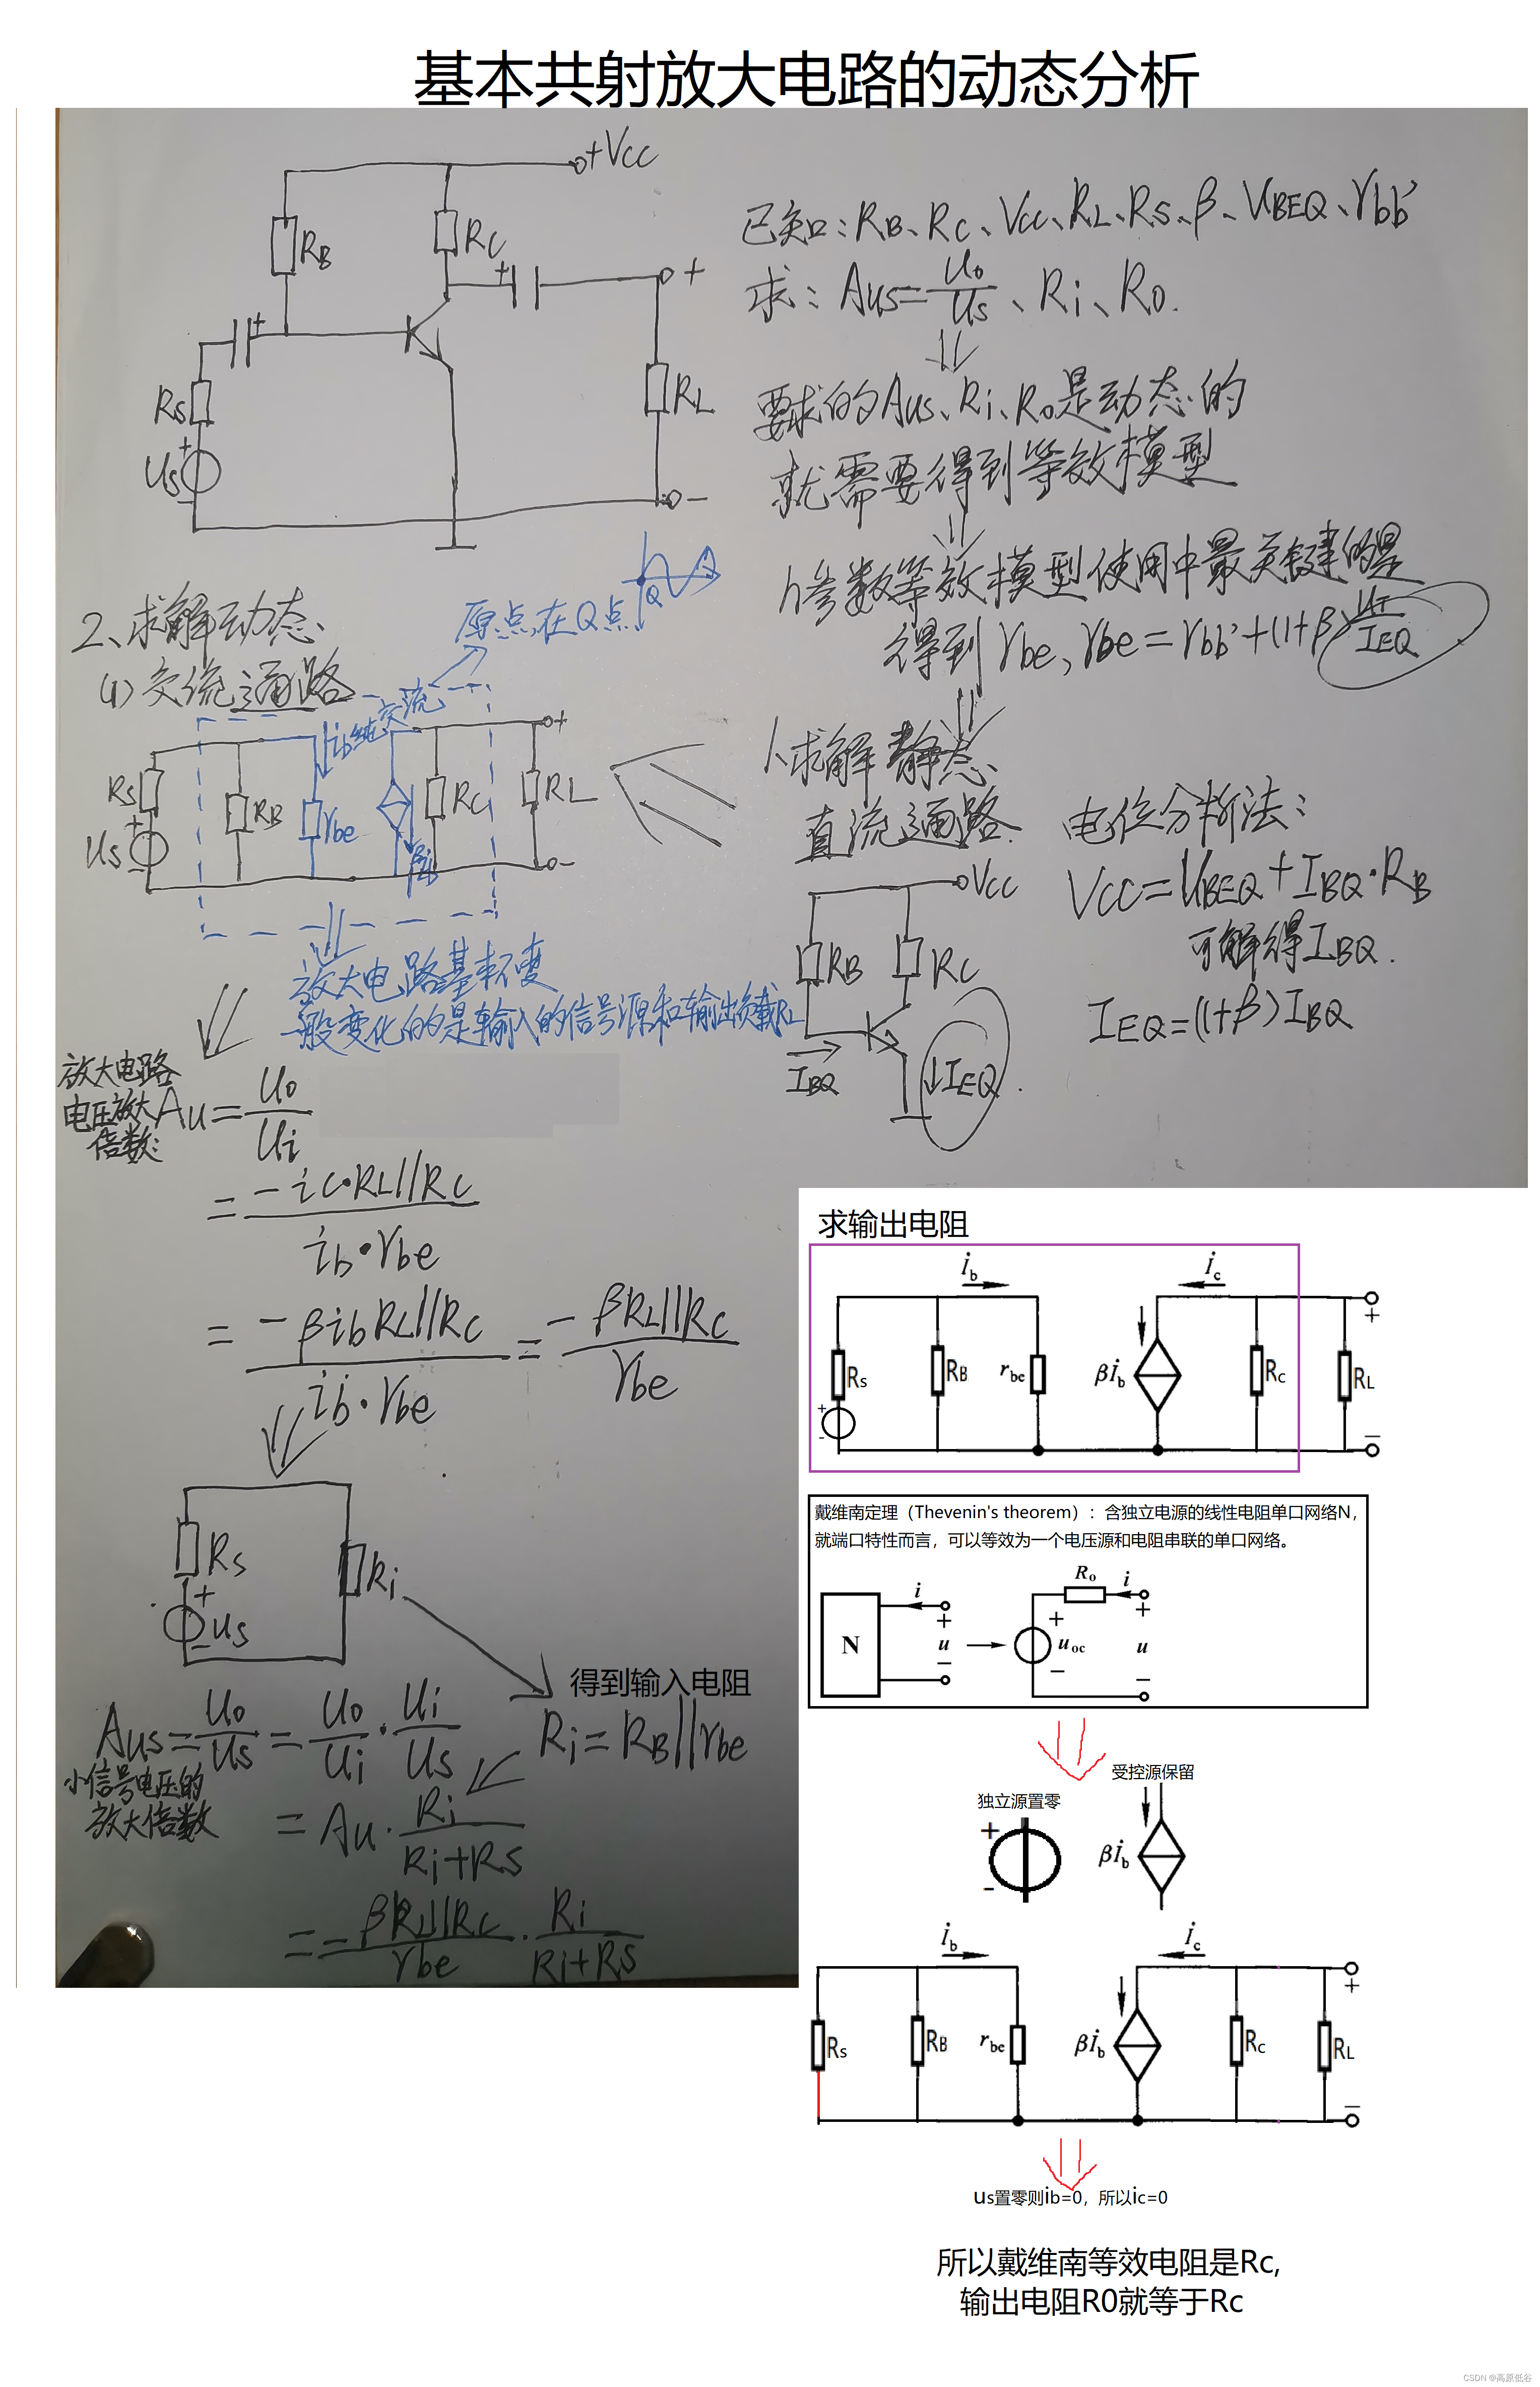 基本共射放大电路的动态分析
+VCC
RB
RC
+
+
+
RS
+
US
-
RL
-
已知:RB、RC、VCC、RL、RS、β、UBEQ、rbb'
求:Aus=uo/us、Ri、Ro.
要求的Aus、Ri、Ro是动态的
就需要得到等效模型
h参数等效模型使用中最关键的是
得到rbe,rbe=rbb'+(1+β)UT/IEQ
1、求解静态
直流通路
VCC
RB
RC
IBQ
IEQ
电位分析法:
VCC=UBEQ+IBQ·RB
可解得IBQ.
IEQ=(1+β)IBQ
2、求解动态
(1)交流通路
原点在Q点
Q
ib纯交流
RS
US
+
-
RB
rbe
βib
RC
RL
+
-
放大电路基本不变
一般变化的是输入的信号源和输出负载RL
放大电路
电压放大
倍数:
Au=uo/ui
=-ic·RL//RC/ib·rbe
=-βibRL//RC/ib·rbe=-βRL//RC/rbe
RS
+
us
-
Ri
得到输入电阻
Ri=RB//rbe
Aus=uo/us=uo/ui·ui/us
小信号电压的
放大倍数
=Au·Ri/Ri+RS
=-βRL//RC/rbe·Ri/Ri+RS
求输出电阻
ib
ic
Rs
+
-
RB
rbe
βib
Rc
RL
+
-
戴维南定理(Thevenin's theorem):含独立电源的线性电阻单口网络N,
就端口特性而言,可以等效为一个电压源和电阻串联的单口网络。
N
i
+
u
-
Ro
i
+
uoc
-
+
u
-
受控源保留
独立源置零
+
-
βib
ib
ic
Rs
RB
rbe
βib
Rc
RL
+
-
us置零则ib=0,所以ic=0
所以戴维南等效电阻是Rc,
输出电阻R0就等于Rc
CSDN @高原低谷